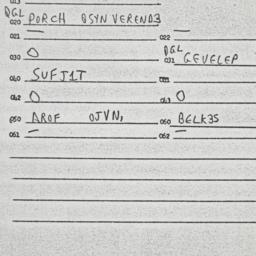 DGL
020 PORCH OSYN VEREND3
021 — 022 —
030 O DGL 031 GEVELEP
040 SUFJ1T
042 O 043 O
050 AROF OJVN, 060 BELK3S
061 — 062 —